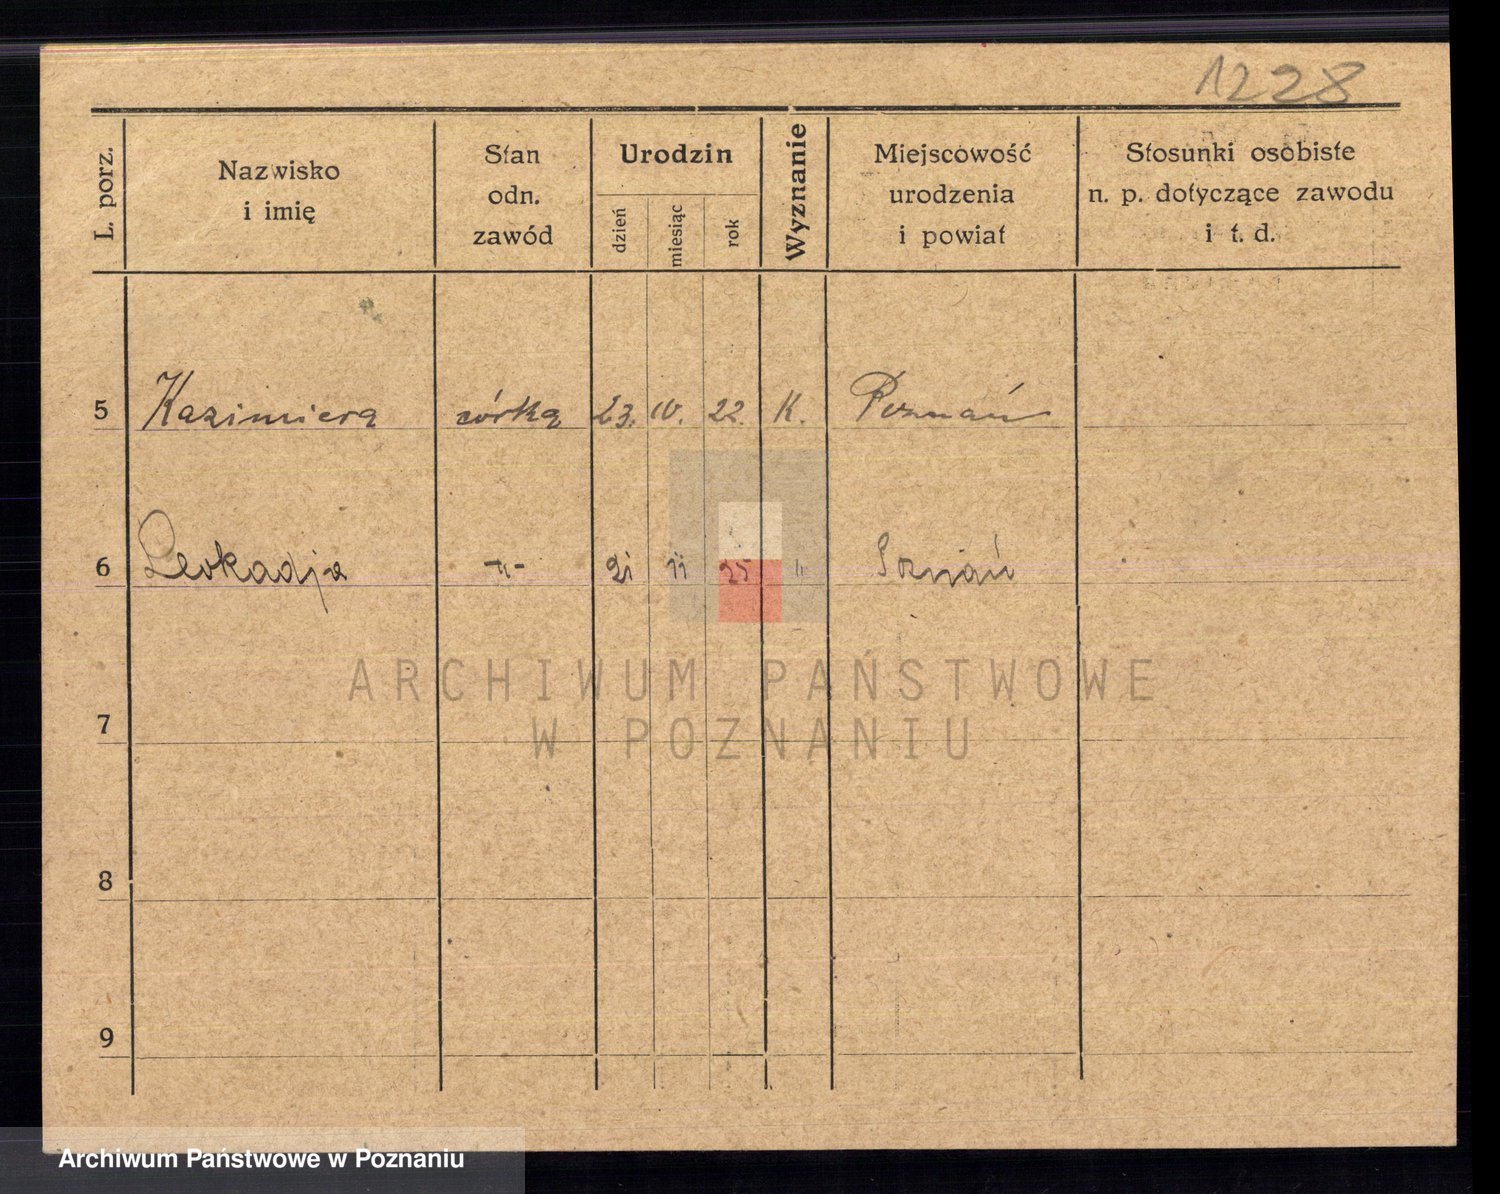 1228
L. porz.
Nazwisko
i imię
Stan
odn.
zawód
Urodzin
dzień
miesiąc
rok
Wyznanie
Miejscowość
urodzenia
i powiat
Stosunki osobiste
n. p. dotyczące zawodu
i t. d.
5 Kazimiera córka 23. IV. 22. K. Poznań
6 Leokadja -"- 21 11 25 " Poznań
7
8
9
ARCHIWUM PAŃSTWOWE
W POZNANIU
Archiwum Państwowe w Poznaniu